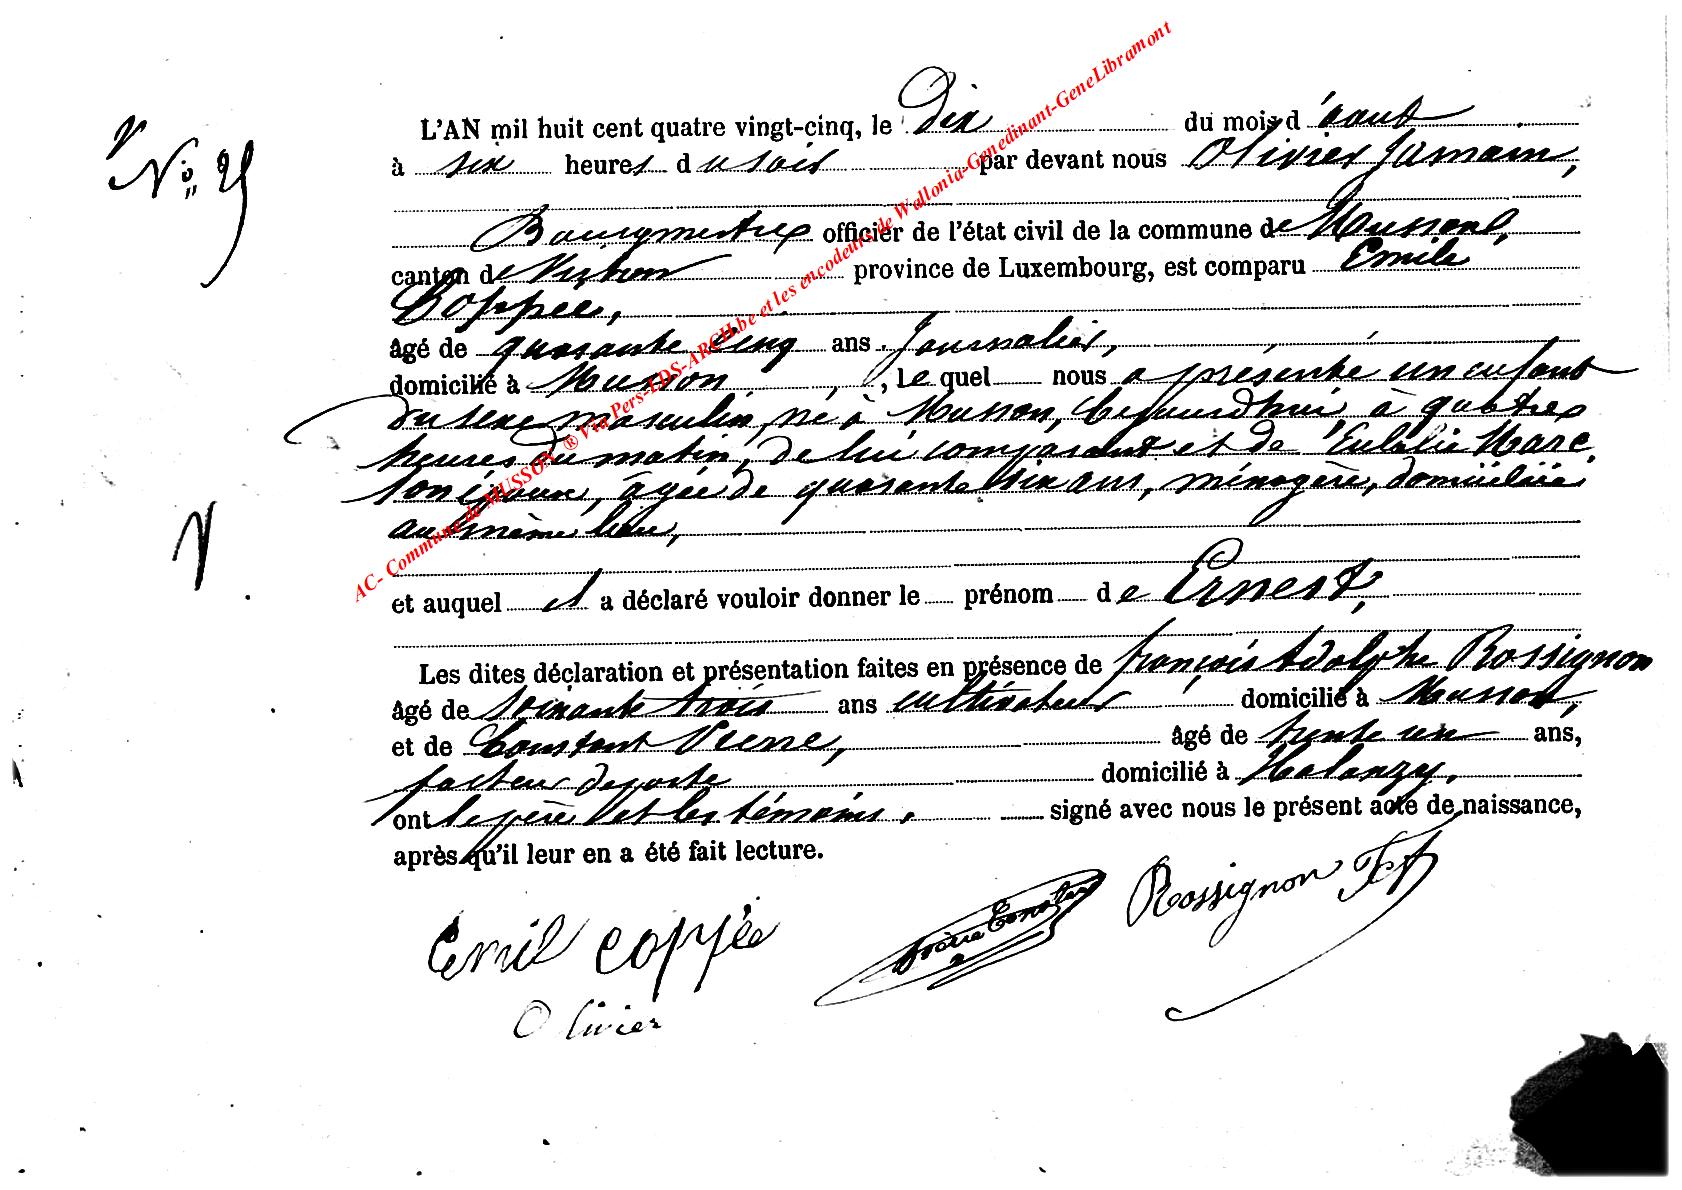 N° 25
L'AN mil huit cent quatre vingt-cinq, le Dix du mois d'aout
à six heures du soir par devant nous Olivier Jamain,
Bourgmestre officier de l'état civil de la commune de Musson,
canton de Virton province de Luxembourg, est comparu Emile
Coppée,
âgé de quarante cinq ans Journalier,
domicilié à Musson, lequel nous a présenté un enfant
du sexe masculin, né à Musson, Cejourd'hui, à quatre
heures du matin, de lui comparant et de Eulalie Marc
son épouse, âgée de quarante six ans, ménagère, domiciliée
au même lieu,
et auquel il a déclaré vouloir donner le prénom de Ernest,
Les dites déclaration et présentation faites en présence de françois Adolphe Rossignon
âgé de soixante trois ans cultivateur domicilié à Musson,
et de Constant Pierre, âgé de trente un ans,
facteur de poste domicilié à Halanzy.
ont le père et les témoins, signé avec nous le présent acte de naissance,
après qu'il leur en a été fait lecture.
Emil Coppée
Rossignon
Olivier
AC- Commune de MUSSON ® Via Pers-LDS-ARCH.be et les encodeurs de Wallonia-Genedinant-GeneLibramont